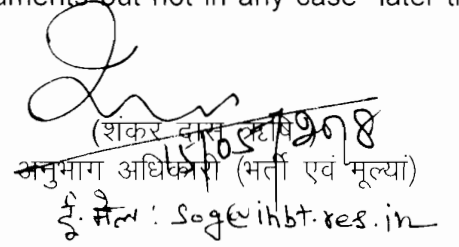 uments but not in any case later t
(शंकर दास ऋषि)
15/05/2018
अनुभाग अधिकारी (भर्ती एवं मूल्यां)
ई. मेल : sog@ihbt.res.in